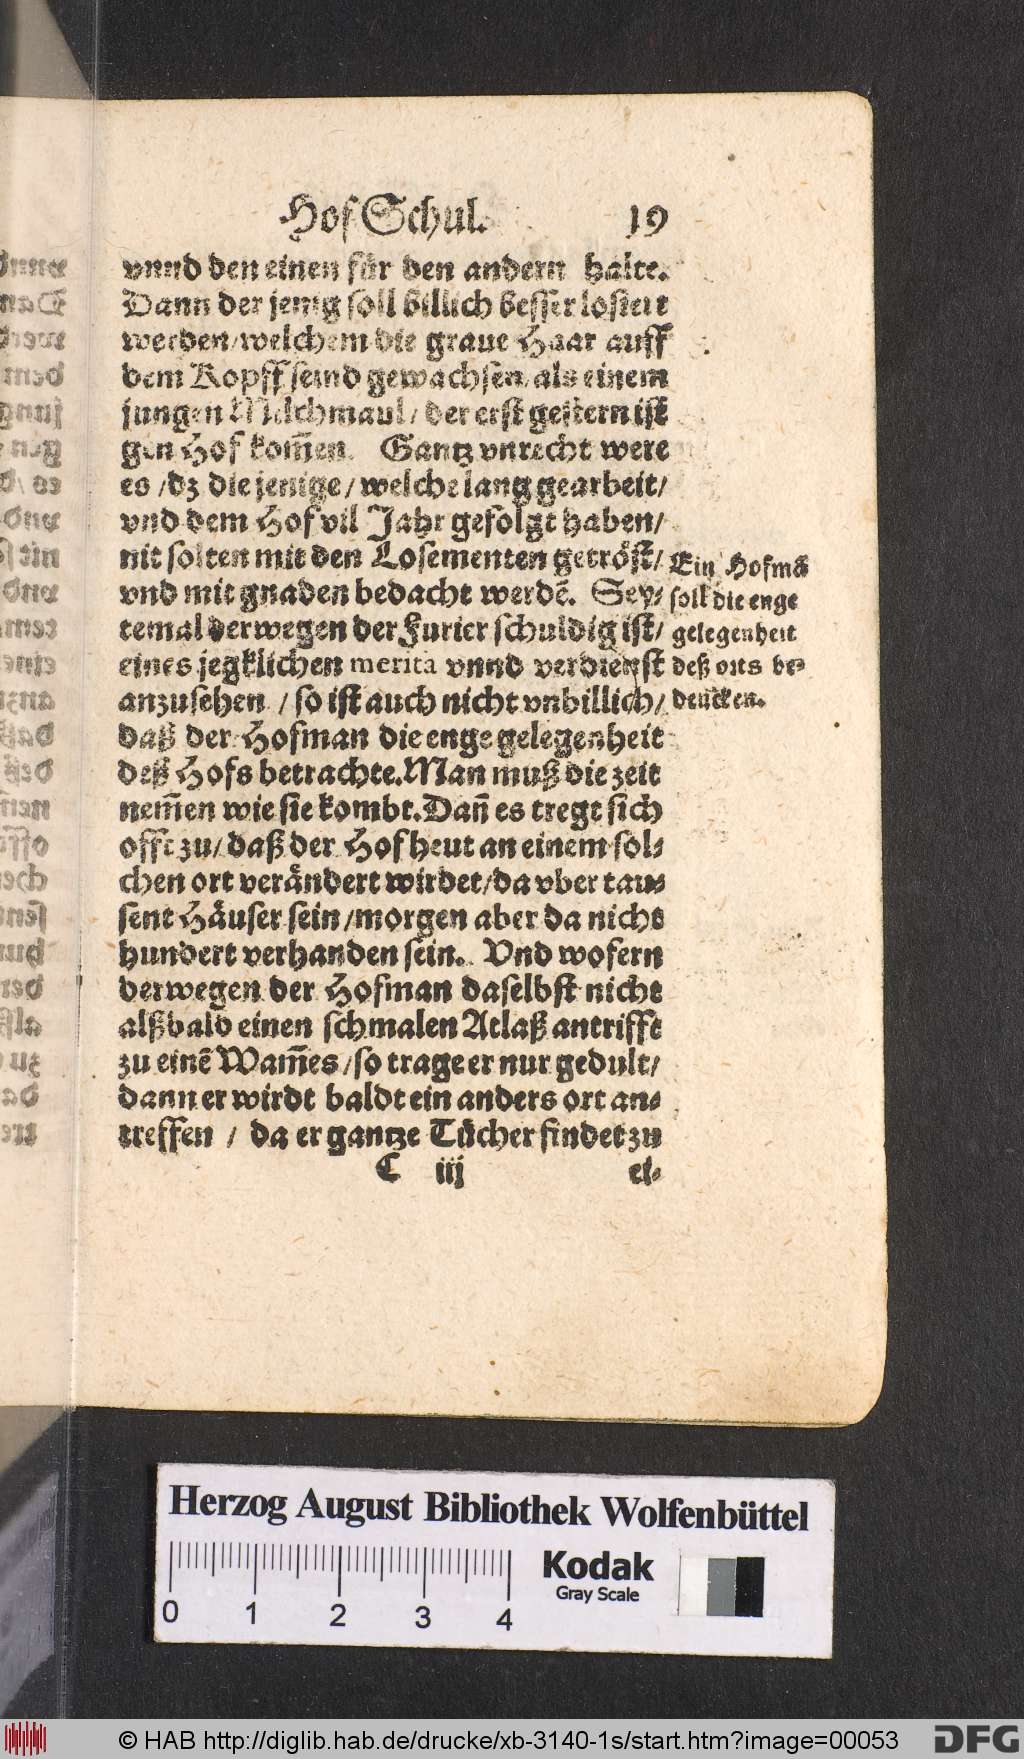 Hof Schul. 19
vnnd den einen für den andern halte.
Dann der jenig soll billich besser losiert
werden/welchem die graue Haar auff
dem Kopff seind gewachsen/als einem
jungen Milchmaul/ der erst gestern ist
gen Hof kom̃en. Gantz vnrecht were
es /dz die jenige/welche lang gearbeit/
vnd dem Hof vil Jahr gefolgt haben/
nit solten mit den Losementen getröst/
vnd mit gnaden bedacht werdẽ. Sey-
temal derwegen der Furier schuldig ist/
eines jegklichen merita vnnd verdienst
anzusehen /so ist auch nicht vnbillich/
daß der Hofman die enge gelegenheit
deß Hofs betrachte.Man muß die zeit
nem̃en wie sie kombt.Dañ es tregt sich
offt zu/daß der Hof heut an einem sol-
chen ort verändert wirdet/da vber tau-
sent Häuser sein/morgen aber da nicht
hundert verhanden sein. Vnd wofern
derwegen der Hofman daselbst nicht
alßbald einen schmalen Atlaß antrifft
zu einẽ Wam̃es/so trage er nur gedult/
dann er wirdt baldt ein anders ort an-
treffen / da er gantze Tücher findet zu
C iij ei-
Ein Hofmã
soll die enge
gelegenheit
deß orts be-
dencken.
Herzog August Bibliothek Wolfenbüttel
Kodak
Gray Scale
0 1 2 3 4
© HAB http://diglib.hab.de/drucke/xb-3140-1s/start.htm?image=00053
DFG